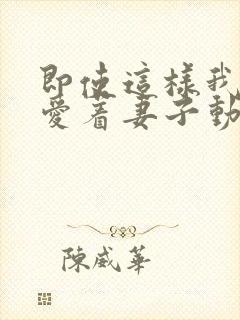 即使這樣我
愛着妻子動
陳威華